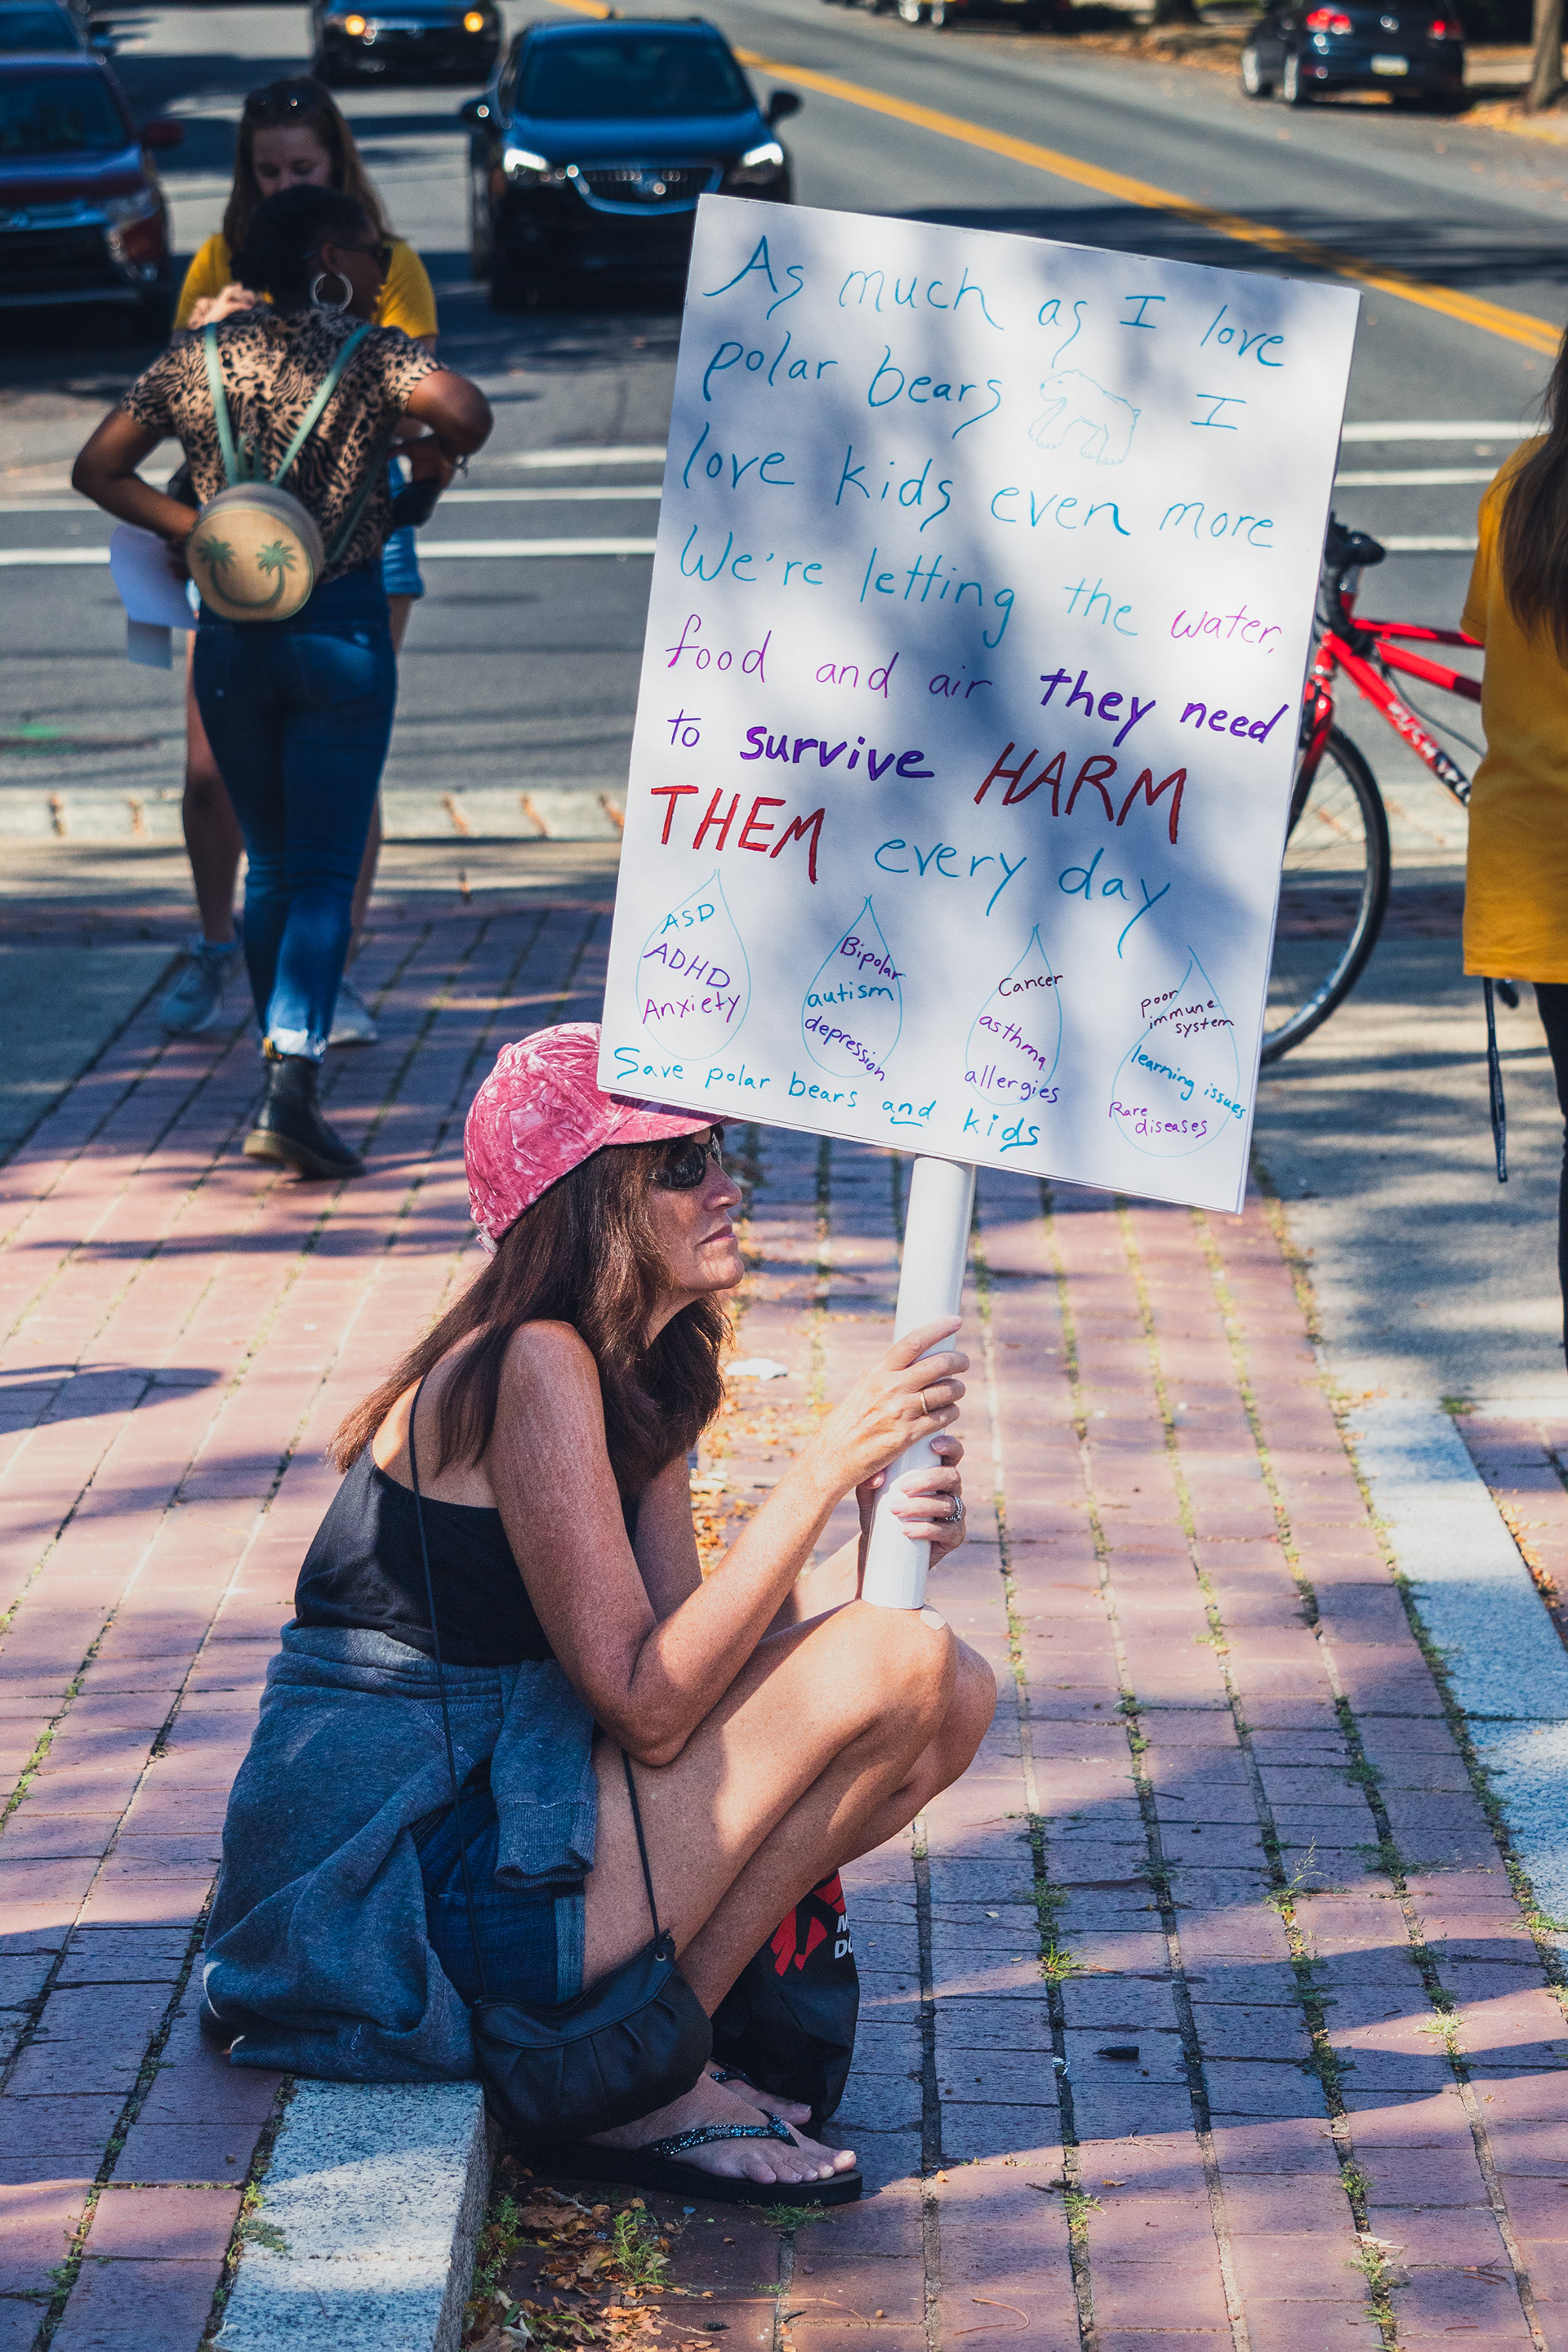 As much as I love
polar bears I
love kids even more
We're letting the water,
food and air they need
to survive HARM
THEM every day
ASD
ADHD
Anxiety
Bipolar
autism
depression
Cancer
asthma
allergies
poor
immune
system
learning issues
Rare
diseases
Save polar bears and kids